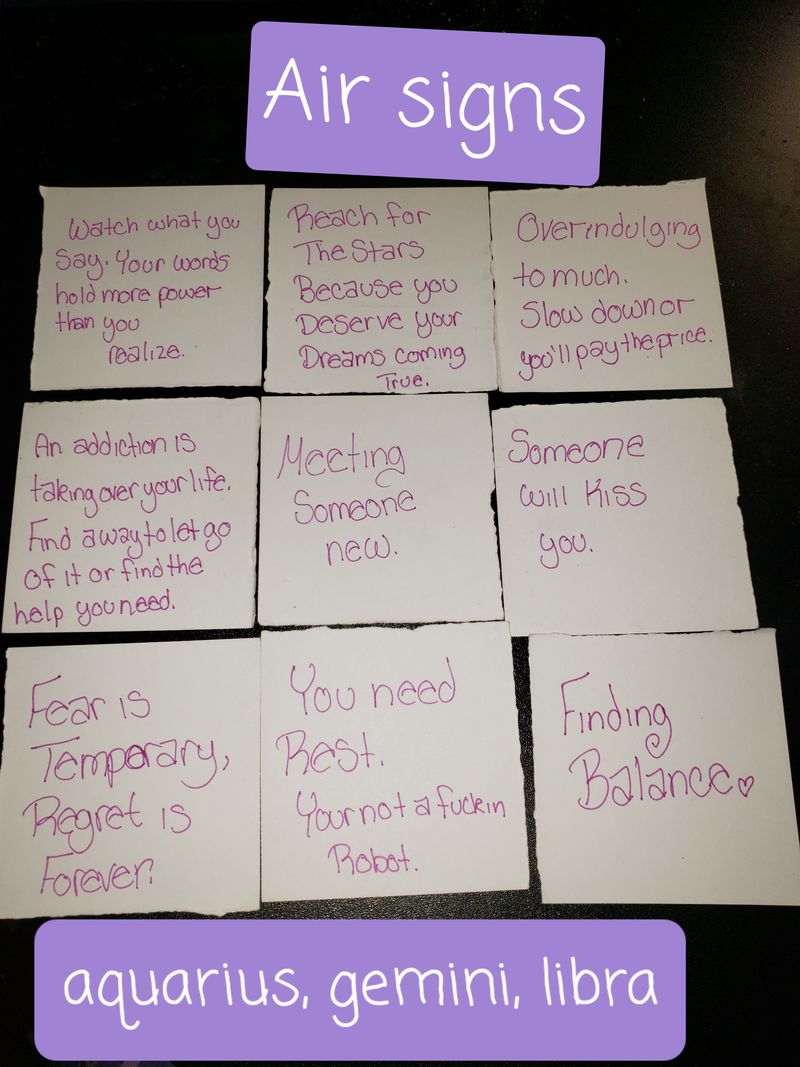 Air signs
Watch what you
Say. Your words
hold more power
than you
realize.
Reach for
The Stars
Because you
Deserve your
Dreams coming
True.
Overindulging
to much.
Slow down or
you'll pay the price.
An addiction is
taking over your life.
Find a way to let go
Of it or find the
help you need.
Meeting
Someone
new.
Someone
will Kiss
you.
Fear is
Temporary,
Regret is
Forever.
You need
Rest.
Your not a fuckin
Robot.
Finding
Balance♡
aquarius, gemini, libra